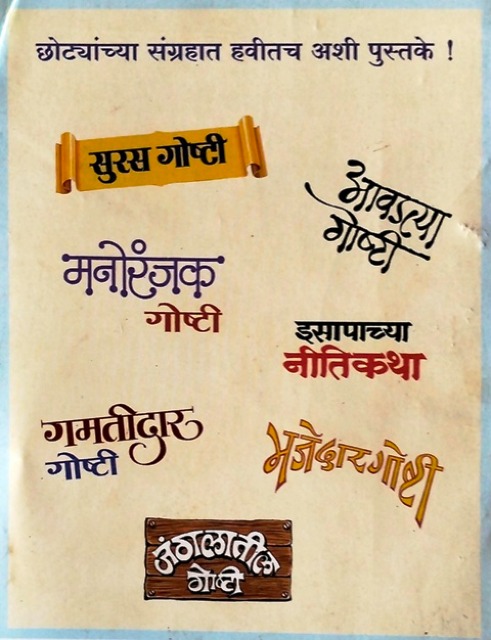 छोट्यांच्या संग्रहात हवीतच अशी पुस्तके !
सुरस गोष्टी
आवडत्या
गोष्टी
मनोरंजक
गोष्टी
इसापाच्या
नीतिकथा
गमतीदार
गोष्टी
मजेदार गोष्टी
जंगलातील
गोष्टी